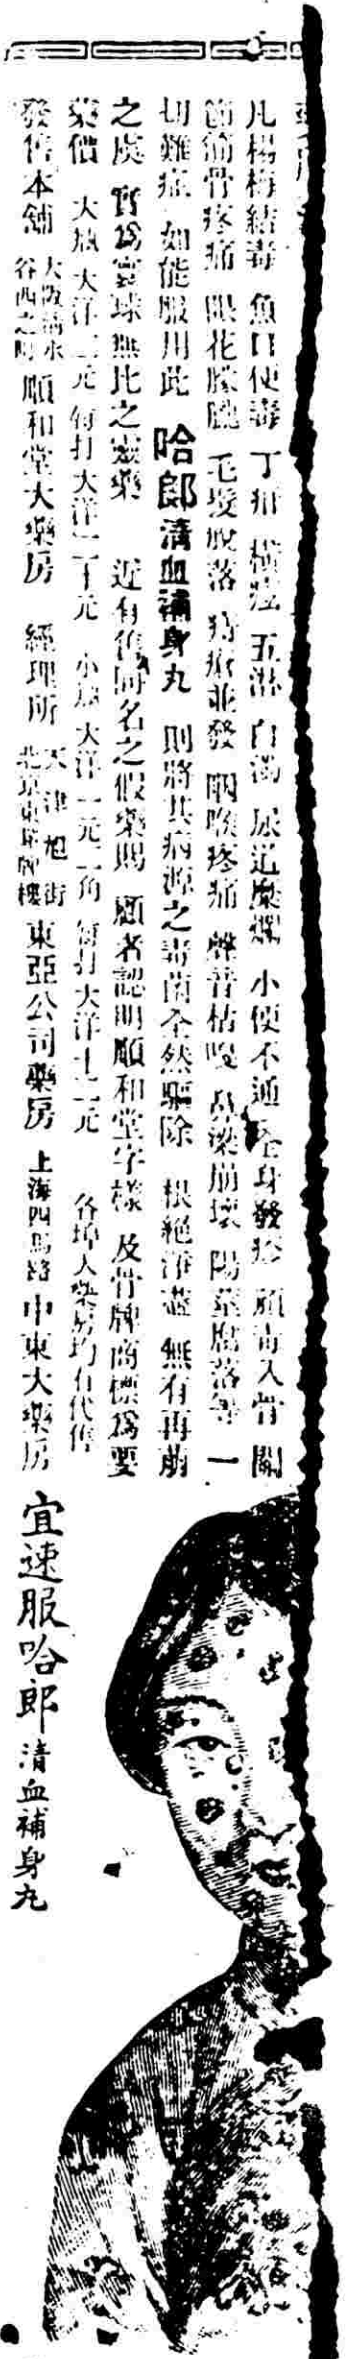 凡楊梅結毒 魚口便毒 丁疳 橫痃 五淋 白濁 尿道糜爛 小便不通 全身發疹 頑毒入骨 關
節筋骨疼痛 眼花朦朧 毛髮脫落 痔瘡並發 咽喉疼痛 聲音枯啞 鼻梁崩壞 陽莖腐落等 一
切難症 如能服用此 哈郎清血補身丸 則將其病源之毒菌全然驅除 根絕淨盡 無有再萌
之虞 實為寰球無比之靈藥 近有售同名之假藥 賜顧者認明順和堂字樣 及骨牌商標為要
藥價 大瓶大洋二元 每打大洋二十元 小瓶大洋一元二角 每打大洋十二元 各埠大藥房均有代售
發售本舖 大阪清水谷西之町 順和堂大藥房 經理所 天津旭街 北京東單牌樓 東亞公司藥房 上海四馬路 中東大藥房
宜速服哈郎清血補身丸